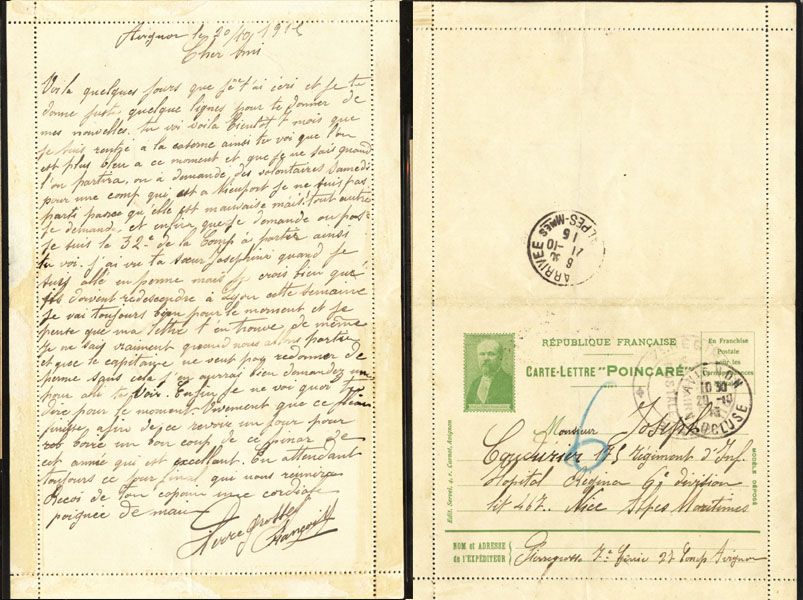 Avignon le 20/10/1915
Cher Ami
Voila quelques jours que je t'ai ecri et je te
donne juste quelque lignes pour te donner de
mes nouvelles. tu voi voila bientot 7 mois que
je suis rentré a la caserne ainsi tu voi que l'on
est plus bleu a ce moment et que je ne sais quand
l'on partira, on a demandé des volontaires Samedi
pour une comp qui est a Nieuport je ne suis pas
parti parce qu'elle est mauvaise mais tout autre
je demande, et enfin que je demande ou pas
je suis le 32e de la Comp a partir ainsi
tu voi. j'ai vu ta sœur Josephine quand je
suis allé en perme mais je crois bien que
ils doivent redescendre a Lyon cette semaine
je vai toujours bien pour le moment et je
pense que ma lettre t'en trouve de même
je ne sais vraiment quand nous allons partir
et que le capitaine ne veut pas redonner de
perme sans cela j'en aurrai bien demandez une
pour alle te voir. Enfin je ne voi quoi te
dire pour le moment. Vivement que ce
finisse, afin de ce revoir un jour pour
boire un bon coup de ce pinar de
cet année qui est excellent. En attendant
toujours ce jour final qui nous réunira
recoi de ton copain une cordiale
poignée de main
Pierregrosse
François
ARRIVEE
ALPES-MMES
6 30
21 -10
15
RÉPUBLIQUE FRANÇAISE
CARTE-LETTRE "POINCARÉ"
En Franchise
Postale
pour les
Correspondances
AVIGNON
10 30
20 -10
15
VAUCLUSE
6
Monsieur Joseph
Couturier 175 Régiment d'Inf.
Hôpital Regina 9e division
lit 467. Nice Alpes Maritimes
MODÈLE DÉPOSÉ
NOM et ADRESSE
de l'EXPÉDITEUR
Pierregrosse 7e Génie 27 Comp Avignon